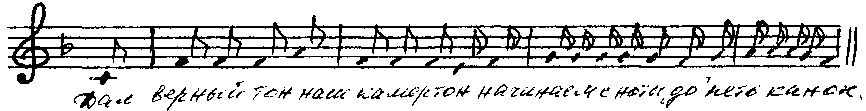 Дал верный тон наш камертон начинаем с ноты „до" петь канон.